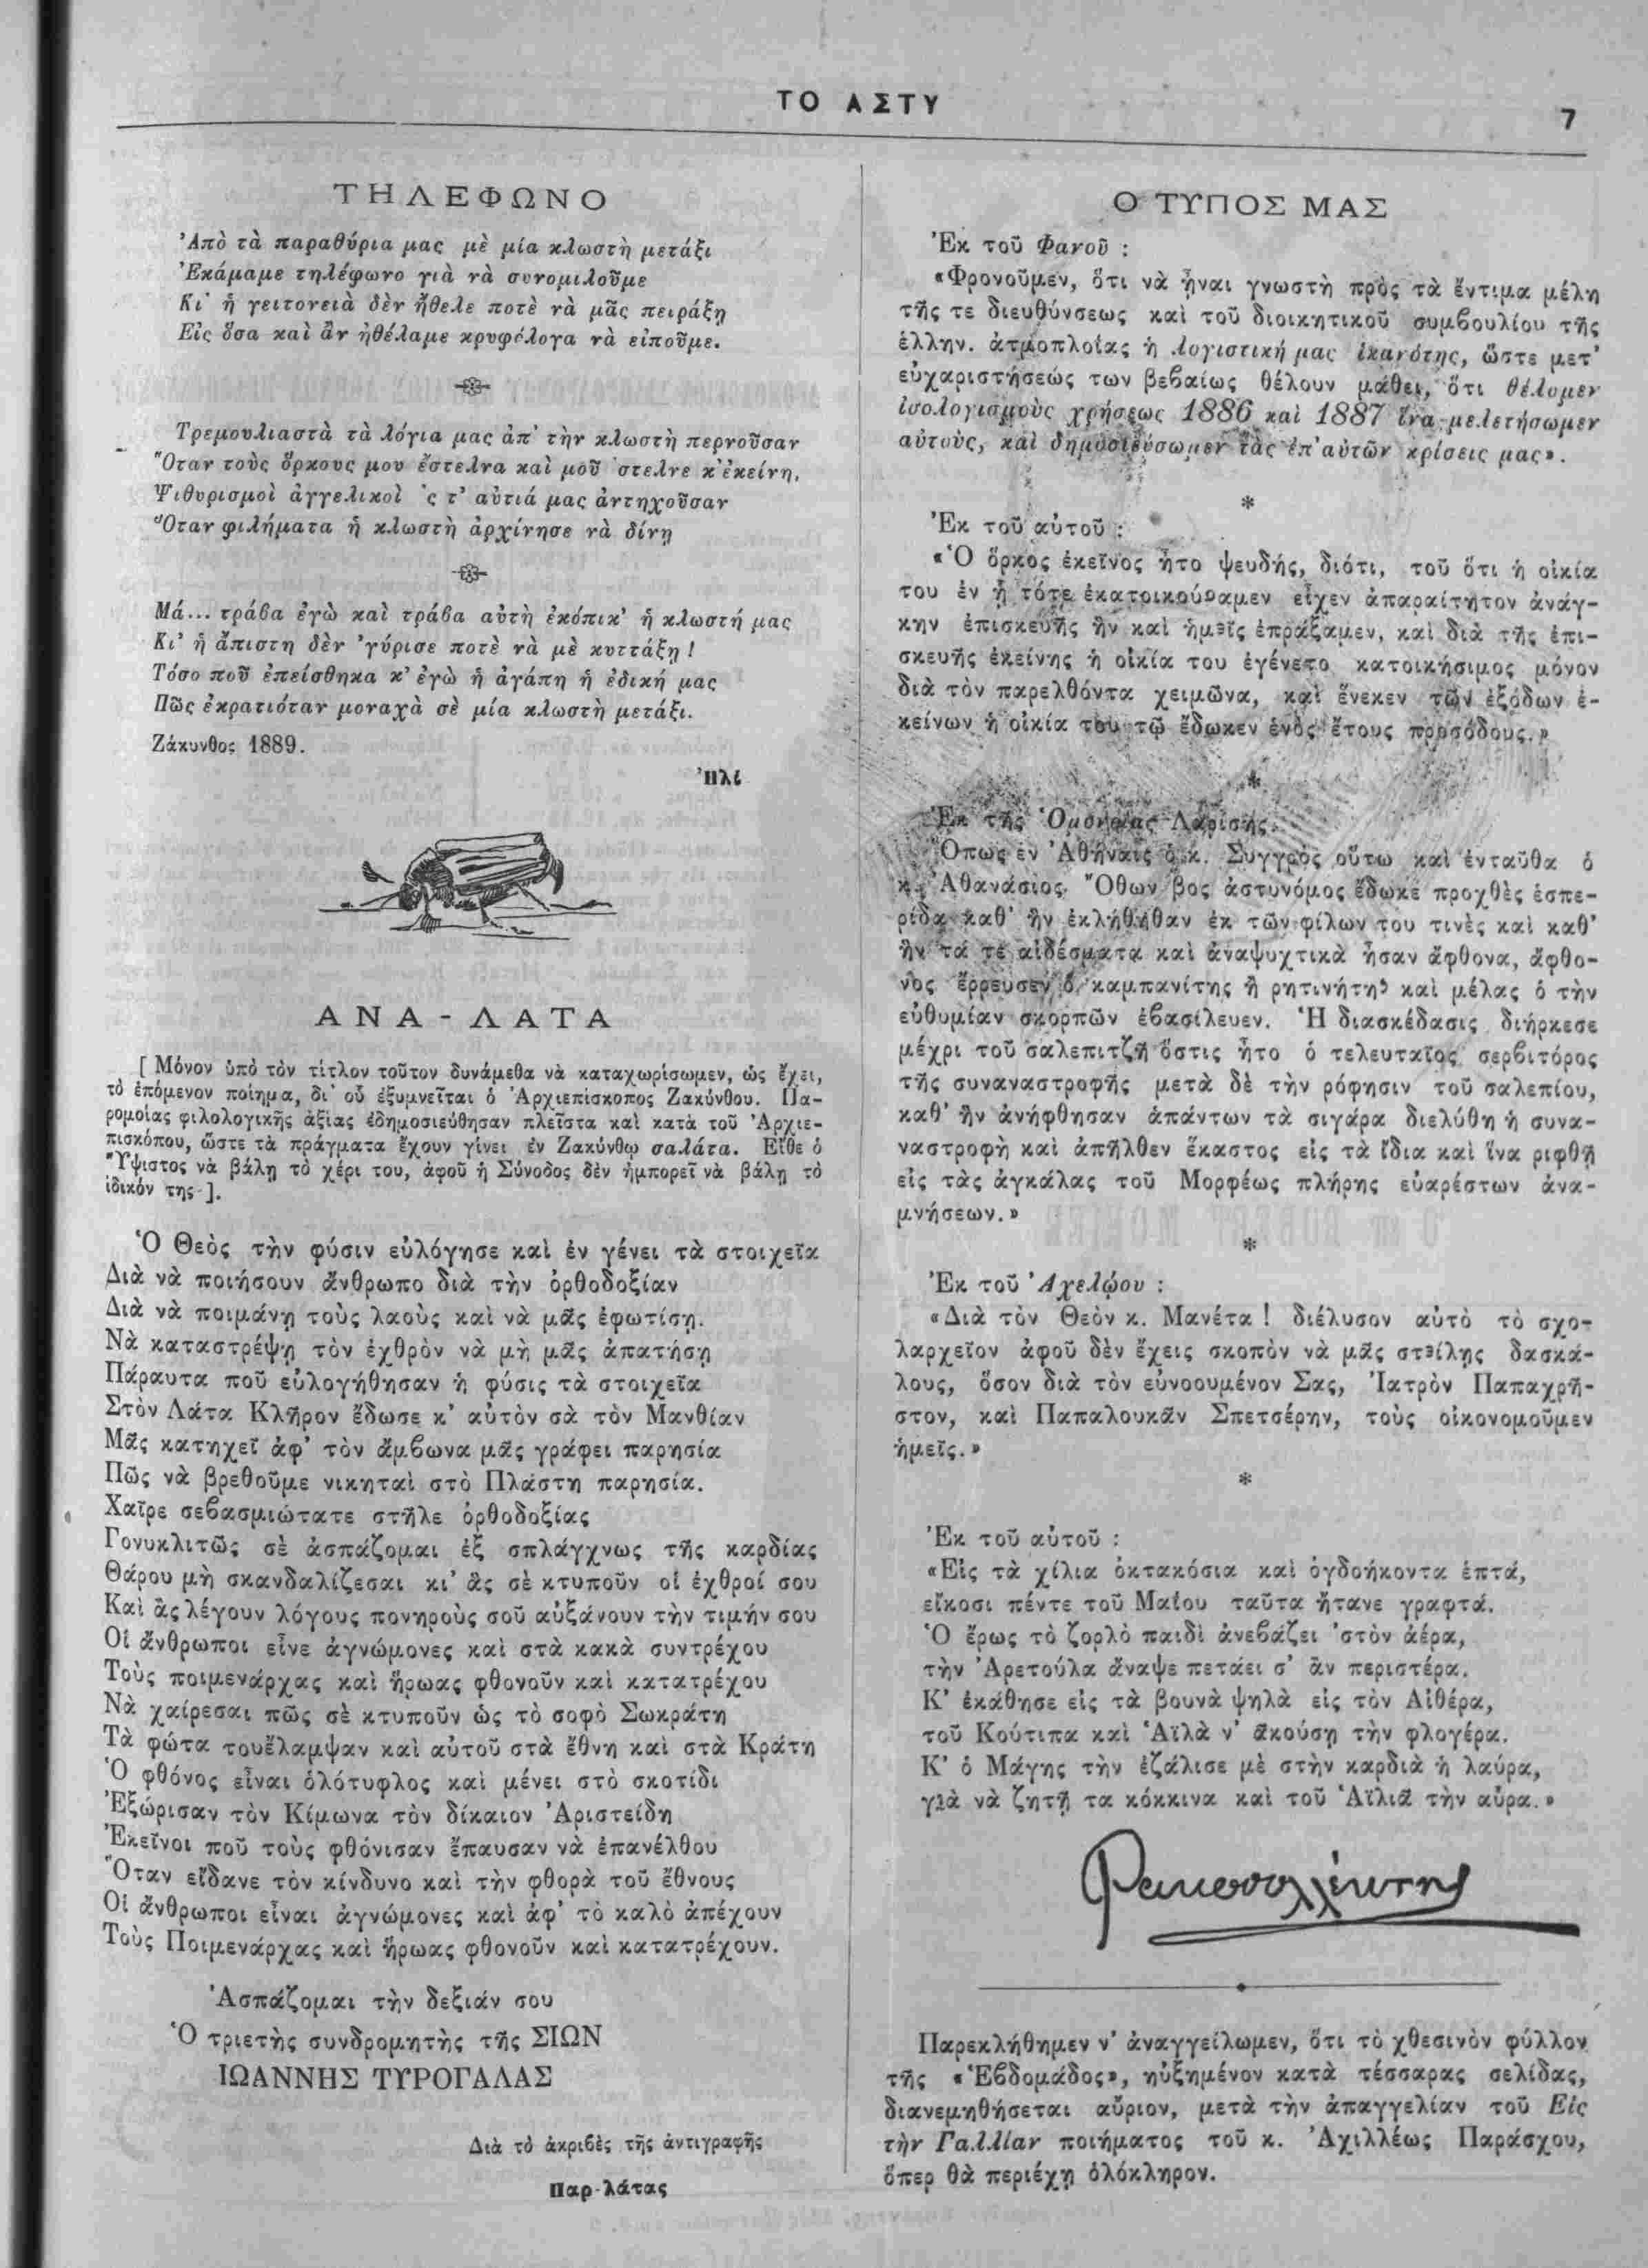 ΤΟ ΑΣΤΥ
7
ΤΗΛΕΦΩΝΟ
Ἀπὸ τὰ παραθύρια μας μὲ μία κλωστὴ μετάξι
Ἐκάμαμε τηλέφωνο γιὰ νὰ συνομιλοῦμε
Κι' ἡ γειτονειὰ δὲν ἤθελε ποτὲ νὰ μᾶς πειράξῃ
Εἰς ὅσα καὶ ἂν ἠθέλαμε κρυφόλογα νὰ εἰποῦμε.
Τρεμουλιαστὰ τὰ λόγια μας ἀπ' τὴν κλωστὴ περνοῦσαν
Ὅταν τοὺς ὅρκους μου ἔστελνα καὶ μοῦ 'στελνε κ' ἐκείνη,
Ψιθυρισμοὶ ἀγγελικοὶ 'ς τ' αὐτιά μας ἀντηχοῦσαν
Ὅταν φιλήματα ἡ κλωστὴ ἀρχίνησε νὰ δίνῃ
Μά... τράβα ἐγὼ καὶ τράβα αὐτὴ ἐκόπικ' ἡ κλωστή μας
Κι' ἡ ἄπιστη δὲν 'γύρισε ποτὲ νὰ μὲ κυττάξῃ!
Τόσο ποῦ ἐπείσθηκα κ' ἐγὼ ἡ ἀγάπη ἡ ἐδική μας
Πῶς ἐκρατιόταν μοναχὰ σὲ μία κλωστὴ μετάξι.
Ζάκυνθος 1889.
Ἠλί
ΑΝΑ - ΛΑΤΑ
[ Μόνον ὑπὸ τὸν τίτλον τοῦτον δυνάμεθα νὰ καταχωρίσωμεν, ὡς ἔχει,
τὸ ἑπόμενον ποίημα, δι' οὗ ἐξυμνεῖται ὁ Ἀρχιεπίσκοπος Ζακύνθου. Πα-
ρομοίας φιλολογικῆς ἀξίας ἐδημοσιεύθησαν πλεῖστα καὶ κατὰ τοῦ Ἀρχιε-
πισκόπου, ὥστε τὰ πράγματα ἔχουν γίνει ἐν Ζακύνθῳ σαλάτα. Εἴθε ὁ
Ὕψιστος νὰ βάλῃ τὸ χέρι του, ἀφοῦ ἡ Σύνοδος δὲν ἠμπορεῖ νὰ βάλῃ τὸ
ἰδικόν της ].
Ὁ Θεὸς τὴν φύσιν εὐλόγησε καὶ ἐν γένει τὰ στοιχεῖα
Διὰ νὰ ποιήσουν ἄνθρωπο διὰ τὴν ὀρθοδοξίαν
Διὰ νὰ ποιμάνῃ τοὺς λαοὺς καὶ νὰ μᾶς ἐφωτίσῃ.
Νὰ καταστρέψῃ τὸν ἐχθρὸν νὰ μὴ μᾶς ἀπατήσῃ
Πάραυτα ποῦ εὐλογήθησαν ἡ φύσις τὰ στοιχεῖα
Στὸν Λάτα Κλῆρον ἔδωσε κ' αὐτὸν σὰ τὸν Μανθίαν
Μᾶς κατηχεῖ ἀφ' τὸν ἄμβωνα μᾶς γράφει παρησία
Πῶς νὰ βρεθοῦμε νικηταὶ στὸ Πλάστη παρησία.
Χαῖρε σεβασμιώτατε στῆλε ὀρθοδοξίας
Γονυκλιτῶς σὲ ἀσπάζομαι ἐξ σπλάγχνως τῆς καρδίας
Θάρου μὴ σκανδαλίζεσαι κι' ἂς σὲ κτυποῦν οἱ ἐχθροί σου
Καὶ ἂς λέγουν λόγους πονηροὺς σοῦ αὐξάνουν τὴν τιμήν σου
Οἱ ἄνθρωποι εἶνε ἀγνώμονες καὶ στὰ κακὰ συντρέχου
Τοὺς ποιμενάρχας καὶ ἥρωας φθονοῦν καὶ κατατρέχου
Νὰ χαίρεσαι πῶς σὲ κτυποῦν ὡς τὸ σοφὸ Σωκράτη
Τὰ φώτα τουἔλαμψαν καὶ αὐτοῦ στὰ ἔθνη καὶ στὰ Κράτη
Ὁ φθόνος εἶναι ὁλότυφλος καὶ μένει στὸ σκοτίδι
Ἐξώρισαν τὸν Κίμωνα τὸν δίκαιον Ἀριστείδη
Ἐκεῖνοι ποῦ τοὺς φθόνισαν ἔπαυσαν νὰ ἐπανέλθου
Ὅταν εἴδανε τὸν κίνδυνο καὶ τὴν φθορὰ τοῦ ἔθνους
Οἱ ἄνθρωποι εἶναι ἀγνώμονες καὶ ἀφ' τὸ καλὸ ἀπέχουν
Τοὺς Ποιμενάρχας καὶ ἥρωας φθονοῦν καὶ κατατρέχουν.
Ἀσπάζομαι τὴν δεξιάν σου
Ὁ τριετὴς συνδρομητὴς τῆς ΣΙΩΝ
ΙΩΑΝΝΗΣ ΤΥΡΟΓΑΛΑΣ
Διὰ τὸ ἀκριβὲς τῆς ἀντιγραφῆς
Παρ-λάτας
Ο ΤΥΠΟΣ ΜΑΣ
Ἐκ τοῦ Φανοῦ :
«Φρονοῦμεν, ὅτι νὰ ᾖναι γνωστὴ πρὸς τὰ ἔντιμα μέλη
τῆς τε διευθύνσεως καὶ τοῦ διοικητικοῦ συμβουλίου τῆς
ἑλλην. ἀτμοπλοΐας ἡ λογιστική μας ἱκανότης, ὥστε μετ'
εὐχαριστήσεώς των βεβαίως θέλουν μάθει, ὅτι θέλομεν
ἰσολογισμοὺς χρήσεως 1886 καὶ 1887 ἵνα μελετήσωμεν
αὐτοὺς, καὶ δημοσιεύσωμεν τὰς ἐπ' αὐτῶν κρίσεις μας».
*
Ἐκ τοῦ αὐτοῦ :
«Ὁ ὅρκος ἐκεῖνος ἦτο ψευδής, διότι, τοῦ ὅτι ἡ οἰκία
του ἐν ᾗ τότε ἐκατοικούσαμεν εἶχεν ἀπαραίτητον ἀνάγ-
κην ἐπισκευῆς ἣν καὶ ἡμεῖς ἐπράξαμεν, καὶ διὰ τῆς ἐπι-
σκευῆς ἐκείνης ἡ οἰκία του ἐγένετο κατοικήσιμος μόνον
διὰ τὸν παρελθόντα χειμῶνα, καὶ ἕνεκεν τῶν ἐξόδων ἐ-
κείνων ἡ οἰκία του τῷ ἔδωκεν ἑνὸς ἔτους προσόδους.»
*
Ἐκ τῆς Ὁμονοίας Λαρίσης.
Ὅπως ἐν Ἀθήναις ὁ κ. Συγγρὸς οὕτω καὶ ἐνταῦθα ὁ
κ. Ἀθανάσιος Ὄθων βος ἀστυνόμος ἔδωκε προχθὲς ἑσπε-
ρίδα καθ' ἣν ἐκλήθηθαν ἐκ τῶν φίλων του τινὲς καὶ καθ'
ἣν τά τε αἰδέσματα καὶ ἀναψυχτικὰ ἦσαν ἄφθονα, ἄφθο-
νος ἔρρευσεν ὁ καμπανίτης ἢ ρητινήτης καὶ μέλας ὁ τὴν
εὐθυμίαν σκορπῶν ἐβασίλευεν. Ἡ διασκέδασις διήρκεσε
μέχρι τοῦ σαλεπιτζῆ ὅστις ἦτο ὁ τελευταῖος σερβιτόρος
τῆς συναναστροφῆς μετὰ δὲ τὴν ρόφησιν τοῦ σαλεπίου,
καθ' ἣν ἀνήφθησαν ἁπάντων τὰ σιγάρα διελύθη ἡ συνα-
ναστροφὴ καὶ ἀπῆλθεν ἕκαστος εἰς τὰ ἴδια καὶ ἵνα ριφθῇ
εἰς τὰς ἀγκάλας τοῦ Μορφέως πλήρης εὐαρέστων ἀνα-
μνήσεων.»
*
Ἐκ τοῦ Ἀχελῴου :
«Διὰ τὸν Θεὸν κ. Μανέτα! διέλυσον αὐτὸ τὸ σχο-
λαρχεῖον ἀφοῦ δὲν ἔχεις σκοπὸν νὰ μᾶς στείλῃς δασκά-
λους, ὅσον διὰ τὸν εὐνοουμένον Σας, Ἰατρὸν Παπαχρῆ-
στον, καὶ Παπαλουκᾶν Σπετσέρην, τοὺς οἰκονομοῦμεν
ἡμεῖς.»
*
Ἐκ τοῦ αὐτοῦ :
«Εἰς τὰ χίλια ὀκτακόσια καὶ ὀγδοήκοντα ἑπτά,
εἴκοσι πέντε τοῦ Μαΐου ταῦτα ἤτανε γραφτά.
Ὁ ἔρως τὸ ζορλὸ παιδὶ ἀνεβάζει 'στὸν ἀέρα,
τὴν Ἀρετούλα ἄναψε πετάει σ' ἂν περιστέρα.
Κ' ἐκάθησε εἰς τὰ βουνὰ ψηλὰ εἰς τὸν Αἰθέρα,
τοῦ Κούτιπα καὶ Ἀϊλὰ ν' ἀκούσῃ τὴν φλογέρα.
Κ' ὁ Μάγης τὴν ἐζάλισε μὲ στὴν καρδιὰ ἡ λαύρα,
γιὰ νὰ ζητῇ τα κόκκινα καὶ τοῦ Ἀϊλιᾶ τὴν αὔρα.»
Φακοσυλλέκτης
Παρεκλήθημεν ν' ἀναγγείλωμεν, ὅτι τὸ χθεσινὸν φύλλον
τῆς «Ἑβδομάδος», ηὐξημένον κατὰ τέσσαρας σελίδας,
διανεμηθήσεται αὔριον, μετὰ τὴν ἀπαγγελίαν τοῦ Εἰς
τὴν Γαλλίαν ποιήματος τοῦ κ. Ἀχιλλέως Παράσχου,
ὅπερ θὰ περιέχῃ ὁλόκληρον.